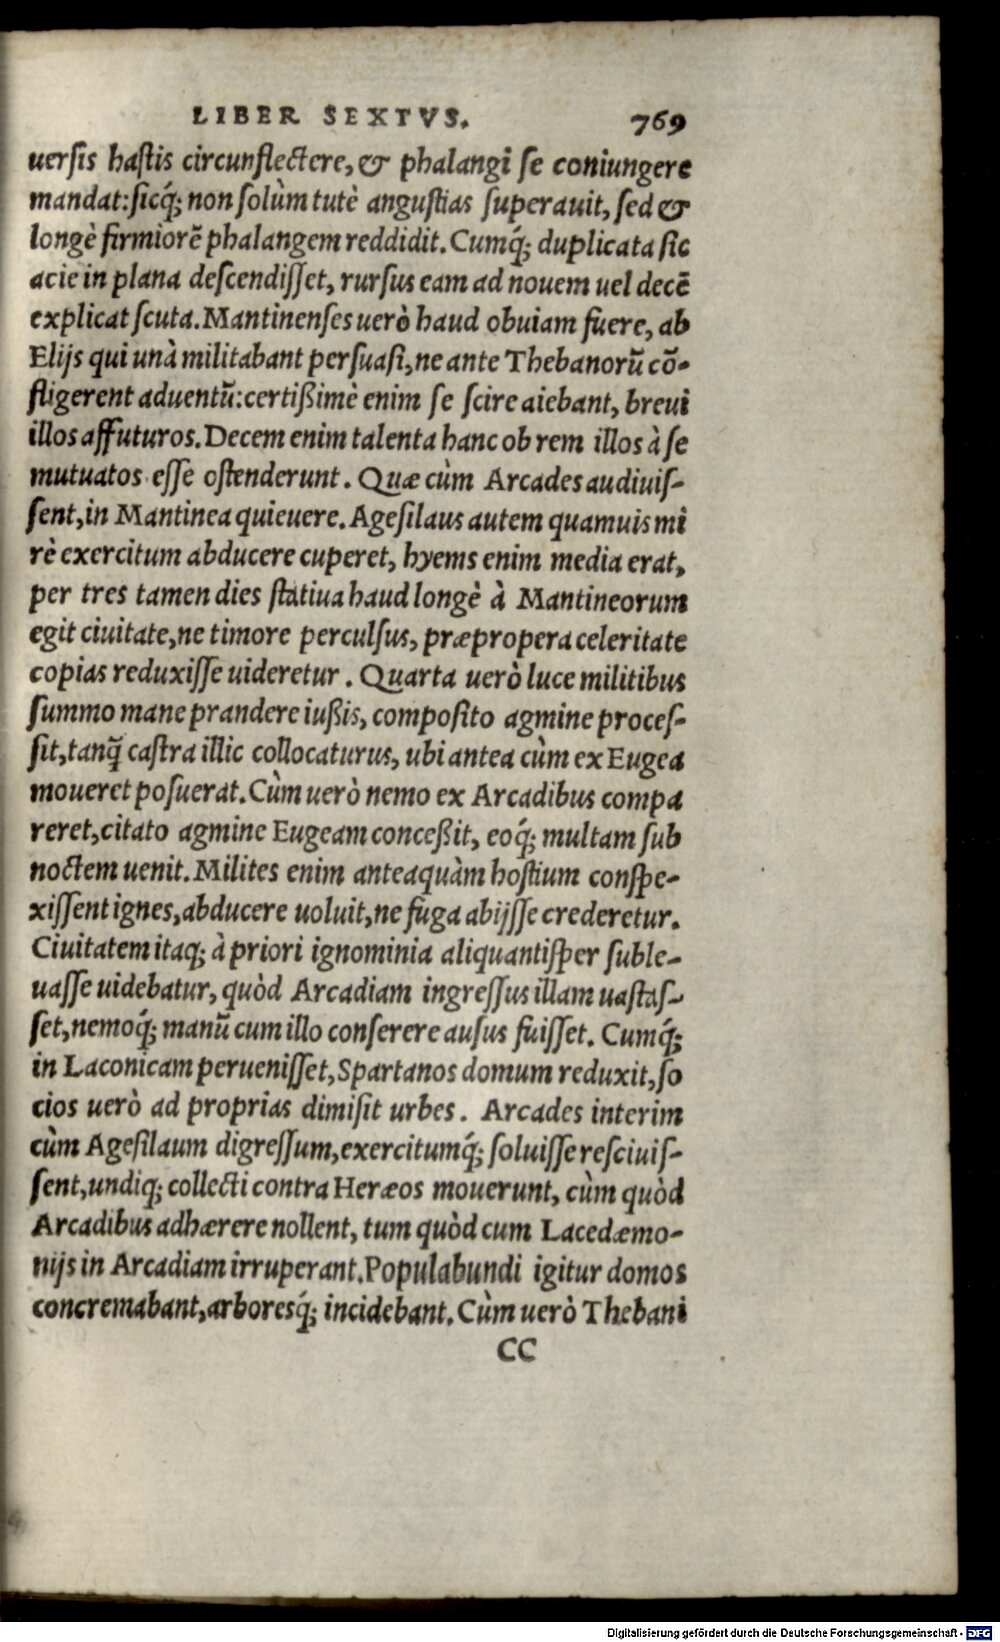 LIBER SEXTVS. 769
uerſis haſtis circunflectere, & phalangi ſe coniungere
mandat: ſicq́; non ſolùm tutè anguſtias ſuperauit, ſed &
longè firmiorẽ phalangem reddidit. Cumq́; duplicata ſic
acie in plana deſcendiſſet, rurſus eam ad nouem uel decẽ
explicat ſcuta. Mantinenſes uerò haud obuiam fuere, ab
Elijs qui unà militabant perſuaſi, ne ante Thebanorũ cõ-
fligerent aduentũ: certißimè enim ſe ſcire aiebant, breui
illos affuturos. Decem enim talenta hanc ob rem illos à ſe
mutuatos eſſe oſtenderunt. Quæ cùm Arcades audiuiſ-
ſent, in Mantinea quieuere. Ageſilaus autem quamuis mi
rè exercitum abducere cuperet, hyems enim media erat,
per tres tamen dies ſtatiua haud longè à Mantineorum
egit ciuitate, ne timore perculſus, præpropera celeritate
copias reduxiſſe uideretur. Quarta uerò luce militibus
ſummo mane prandere iußis, compoſito agmine proceſ-
ſit, tanq̃ caſtra illic collocaturus, ubi antea cùm ex Eugea
moueret poſuerat. Cùm uerò nemo ex Arcadibus compa
reret, citato agmine Eugeam conceßit, eoq́; multam ſub
noctem uenit. Milites enim anteaquàm hoſtium conſpe-
xiſſent ignes, abducere uoluit, ne fuga abijſſe crederetur.
Ciuitatem itaq; à priori ignominia aliquantiſper ſuble-
uaſſe uidebatur, quòd Arcadiam ingreſſus illam uaſtaſ-
ſet, nemoq́; manũ cum illo conſerere auſus fuiſſet. Cumq́;
in Laconicam perueniſſet, Spartanos domum reduxit, ſo
cios uerò ad proprias dimiſit urbes. Arcades interim
cùm Ageſilaum digreſſum, exercitumq́; ſoluiſſe reſciuiſ-
ſent, undiq; collecti contra Heræos mouerunt, cùm quòd
Arcadibus adhærere nollent, tum quòd cum Lacedæmo-
nijs in Arcadiam irruperant. Populabundi igitur domos
concremabant, arboresq́; incidebant. Cùm uerò Thebani
CC
Digitalisierung gefördert durch die Deutsche Forschungsgemeinschaft - DFG